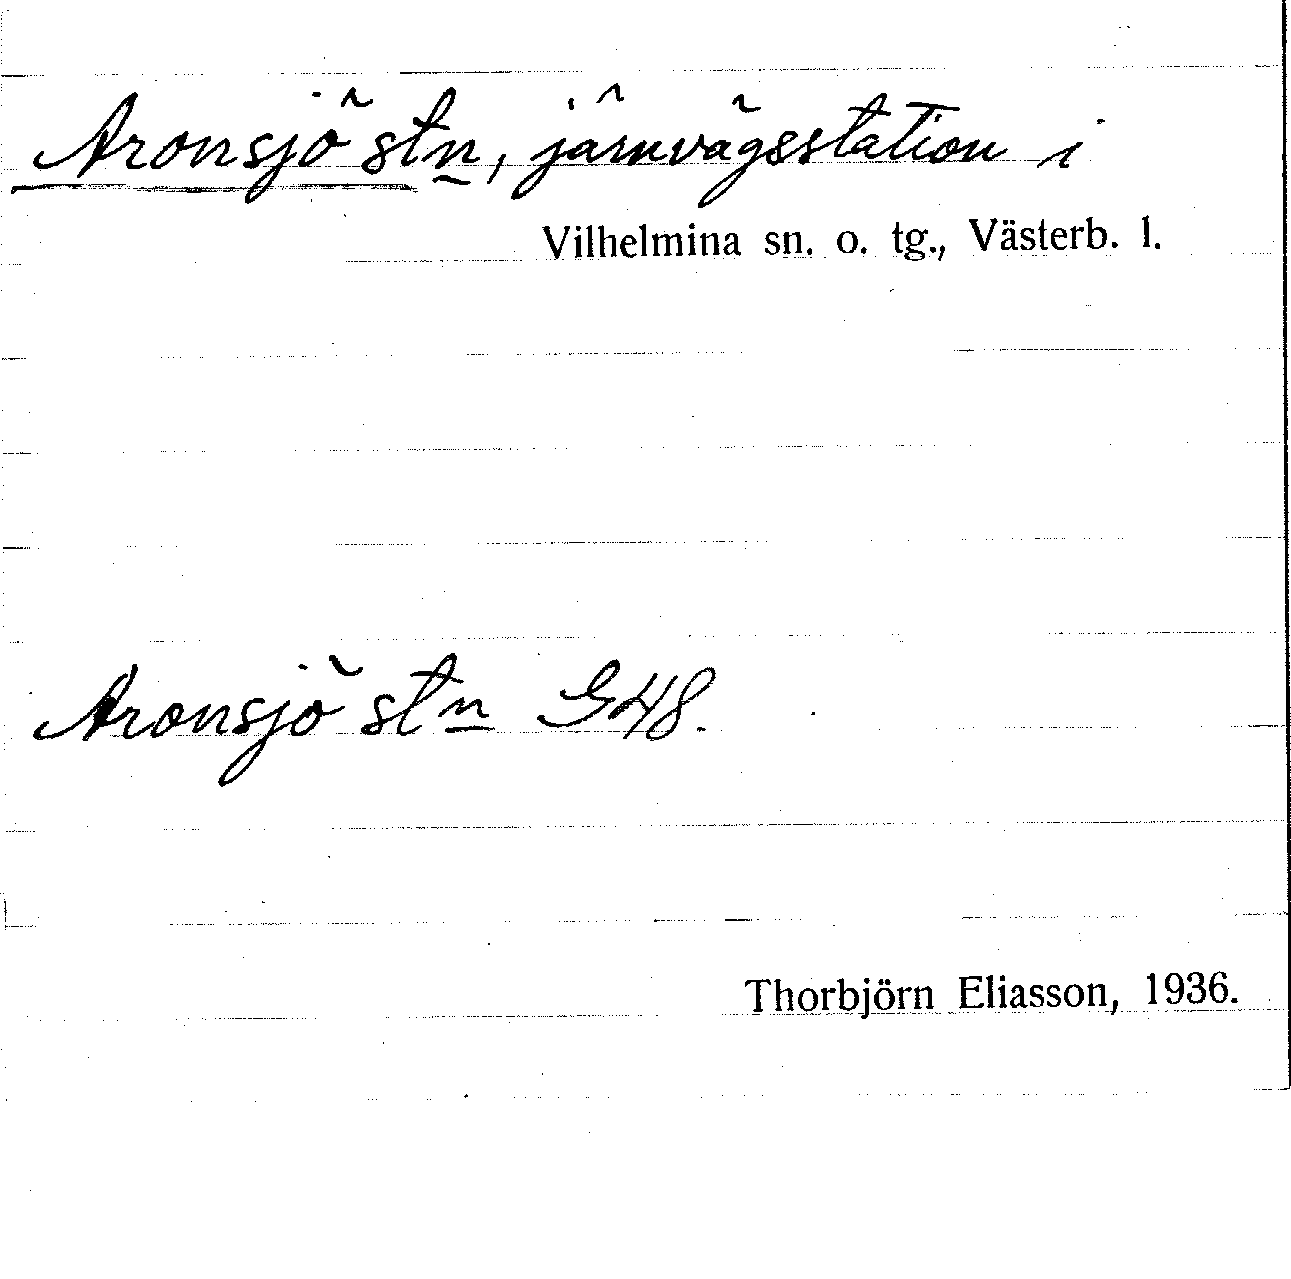 Aronsjö stn, järnvägsstation i
Vilhelmina sn. o. tg., Västerb. l.
Aronsjö stn G48.
Thorbjörn Eliasson, 1936.